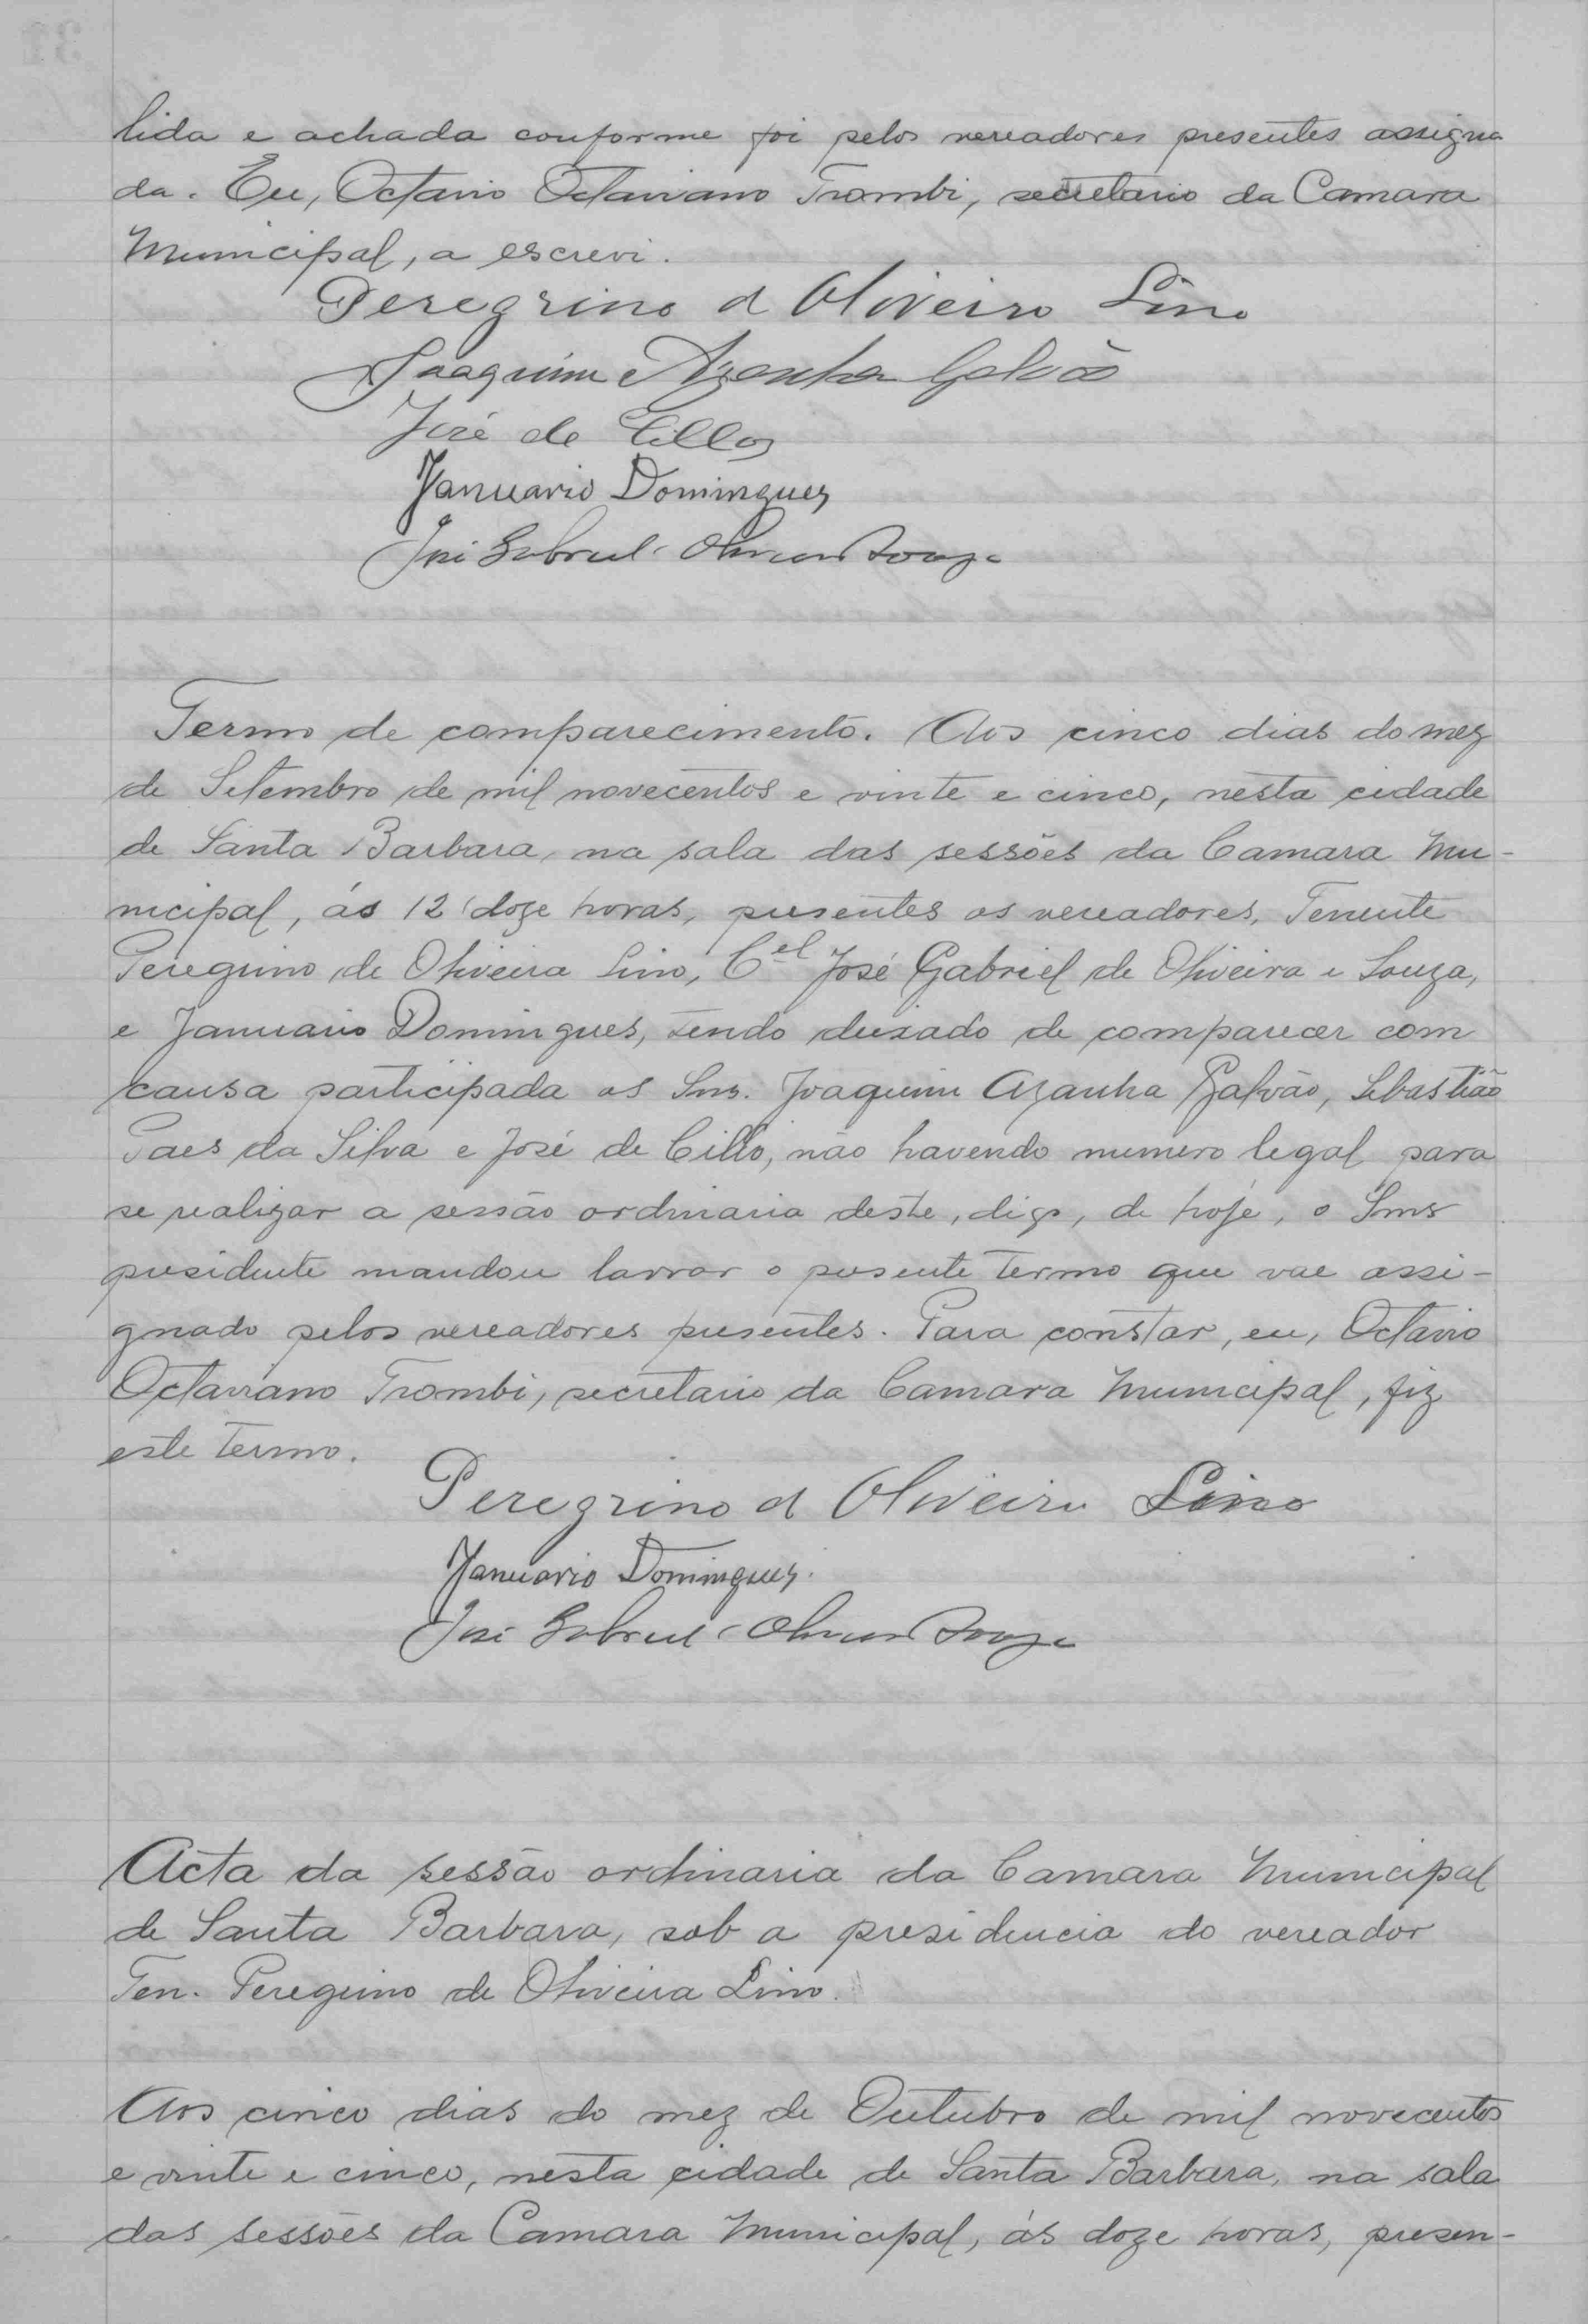 lida e achada conforme foi pelos vereadores presentes assigna
da. Eu, Octavio Octaviano Trombi, secretario da Camara
Municipal, a escrevi.
Peregrino d Oliveira Lino
Joaquim Azanha Galvão
José de Cillo
Januario Domingues
José Gabriel Oliveira Souza
Termo de comparecimento. Aos cinco dias do mez
de Setembro de mil novecentos e vinte e cinco, nesta cidade
de Santa Barbara, na sala das sessões da Camara Mu-
nicipal, ás 12 doze horas, presentes os vereadores, Tenente
Peregrino de Oliveira Lino, Cel José Gabriel de Oliveira e Souza,
e Januario Domingues, tendo deixado de comparecer com
causa participada os Snrs. Joaquim Azanha Galvão, Sebastião
Paes da Silva e José de Cillo, não havendo numero legal para
se realizar a sessão ordinaria deste, digo, de hoje, o Snr
presidente mandou lavrar o presente termo que vae assi-
gnado pelos vereadores presentes. Para constar, eu, Octavio
Octaviano Trombi, secretario da Camara Municipal, fiz
este termo.
Peregrino d Oliveira Lino
Januario Domingues.
José Gabriel Oliveira Souza
Acta da sessão ordinaria da Camara Municipal
de Santa Barbara, sob a presidencia do vereador
Ten. Peregrino de Oliveira Lino.
Aos cinco dias do mez de Outubro de mil novecentos
e vinte e cinco, nesta cidade de Santa Barbara, na sala
das sessões da Camara Municipal, ás doze horas, presen-